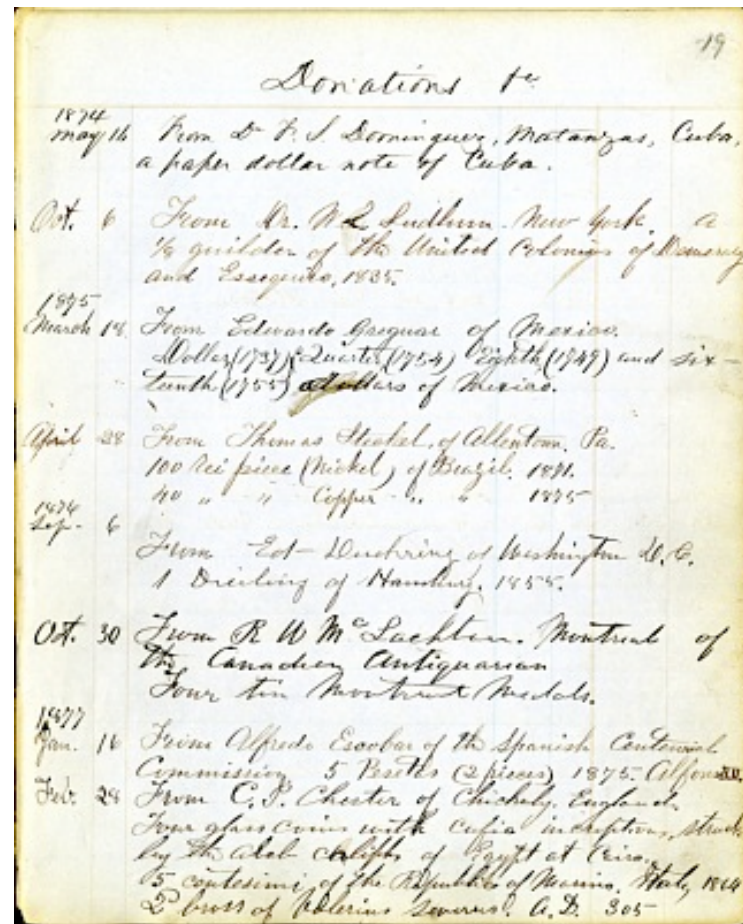 19
Donations &c
1874
May 16 From Dr F. S. Dominguez, Matanzas, Cuba,
a paper dollar note of Cuba.
Oct. 6 From Dr. New York. a
1/8 guilder of the United Colonies of
and Essequibo, 1835.
1875
March 18 From Edwardo of Mexico.
Dollar (1737) Quarter (1754) Eighth (1749) and six-
teenth (1755) dollars of Mexico.
April 28 From Thomas Steckel, of Allentown, Pa.
100 Rei piece (Nickel) of Brazil. 1871.
40 " " Copper " " 1875
1876
Sep. 6
From of Washington D.C.
1 of Hamburg. 1855.
Oct. 30 From R W McLachlan. Montreal of
the Canadien Antiquarian
Four tin Montreal Medals.
1877
Jan. 16 From Alfredo Escobar of the Spanish Centennial
Commission 5 Pesetas (2 pieces) 1875. Alfonso XII.
Feb. 28 From C. P. Chester of England
Four glass coins with cufia inscriptions, struck
by the Arab caliphs of Egypt at Cairo.
5 centesimi of the Republic of Marino. Italy, 1864
2 brass of Valerius Severus. A.D. 305